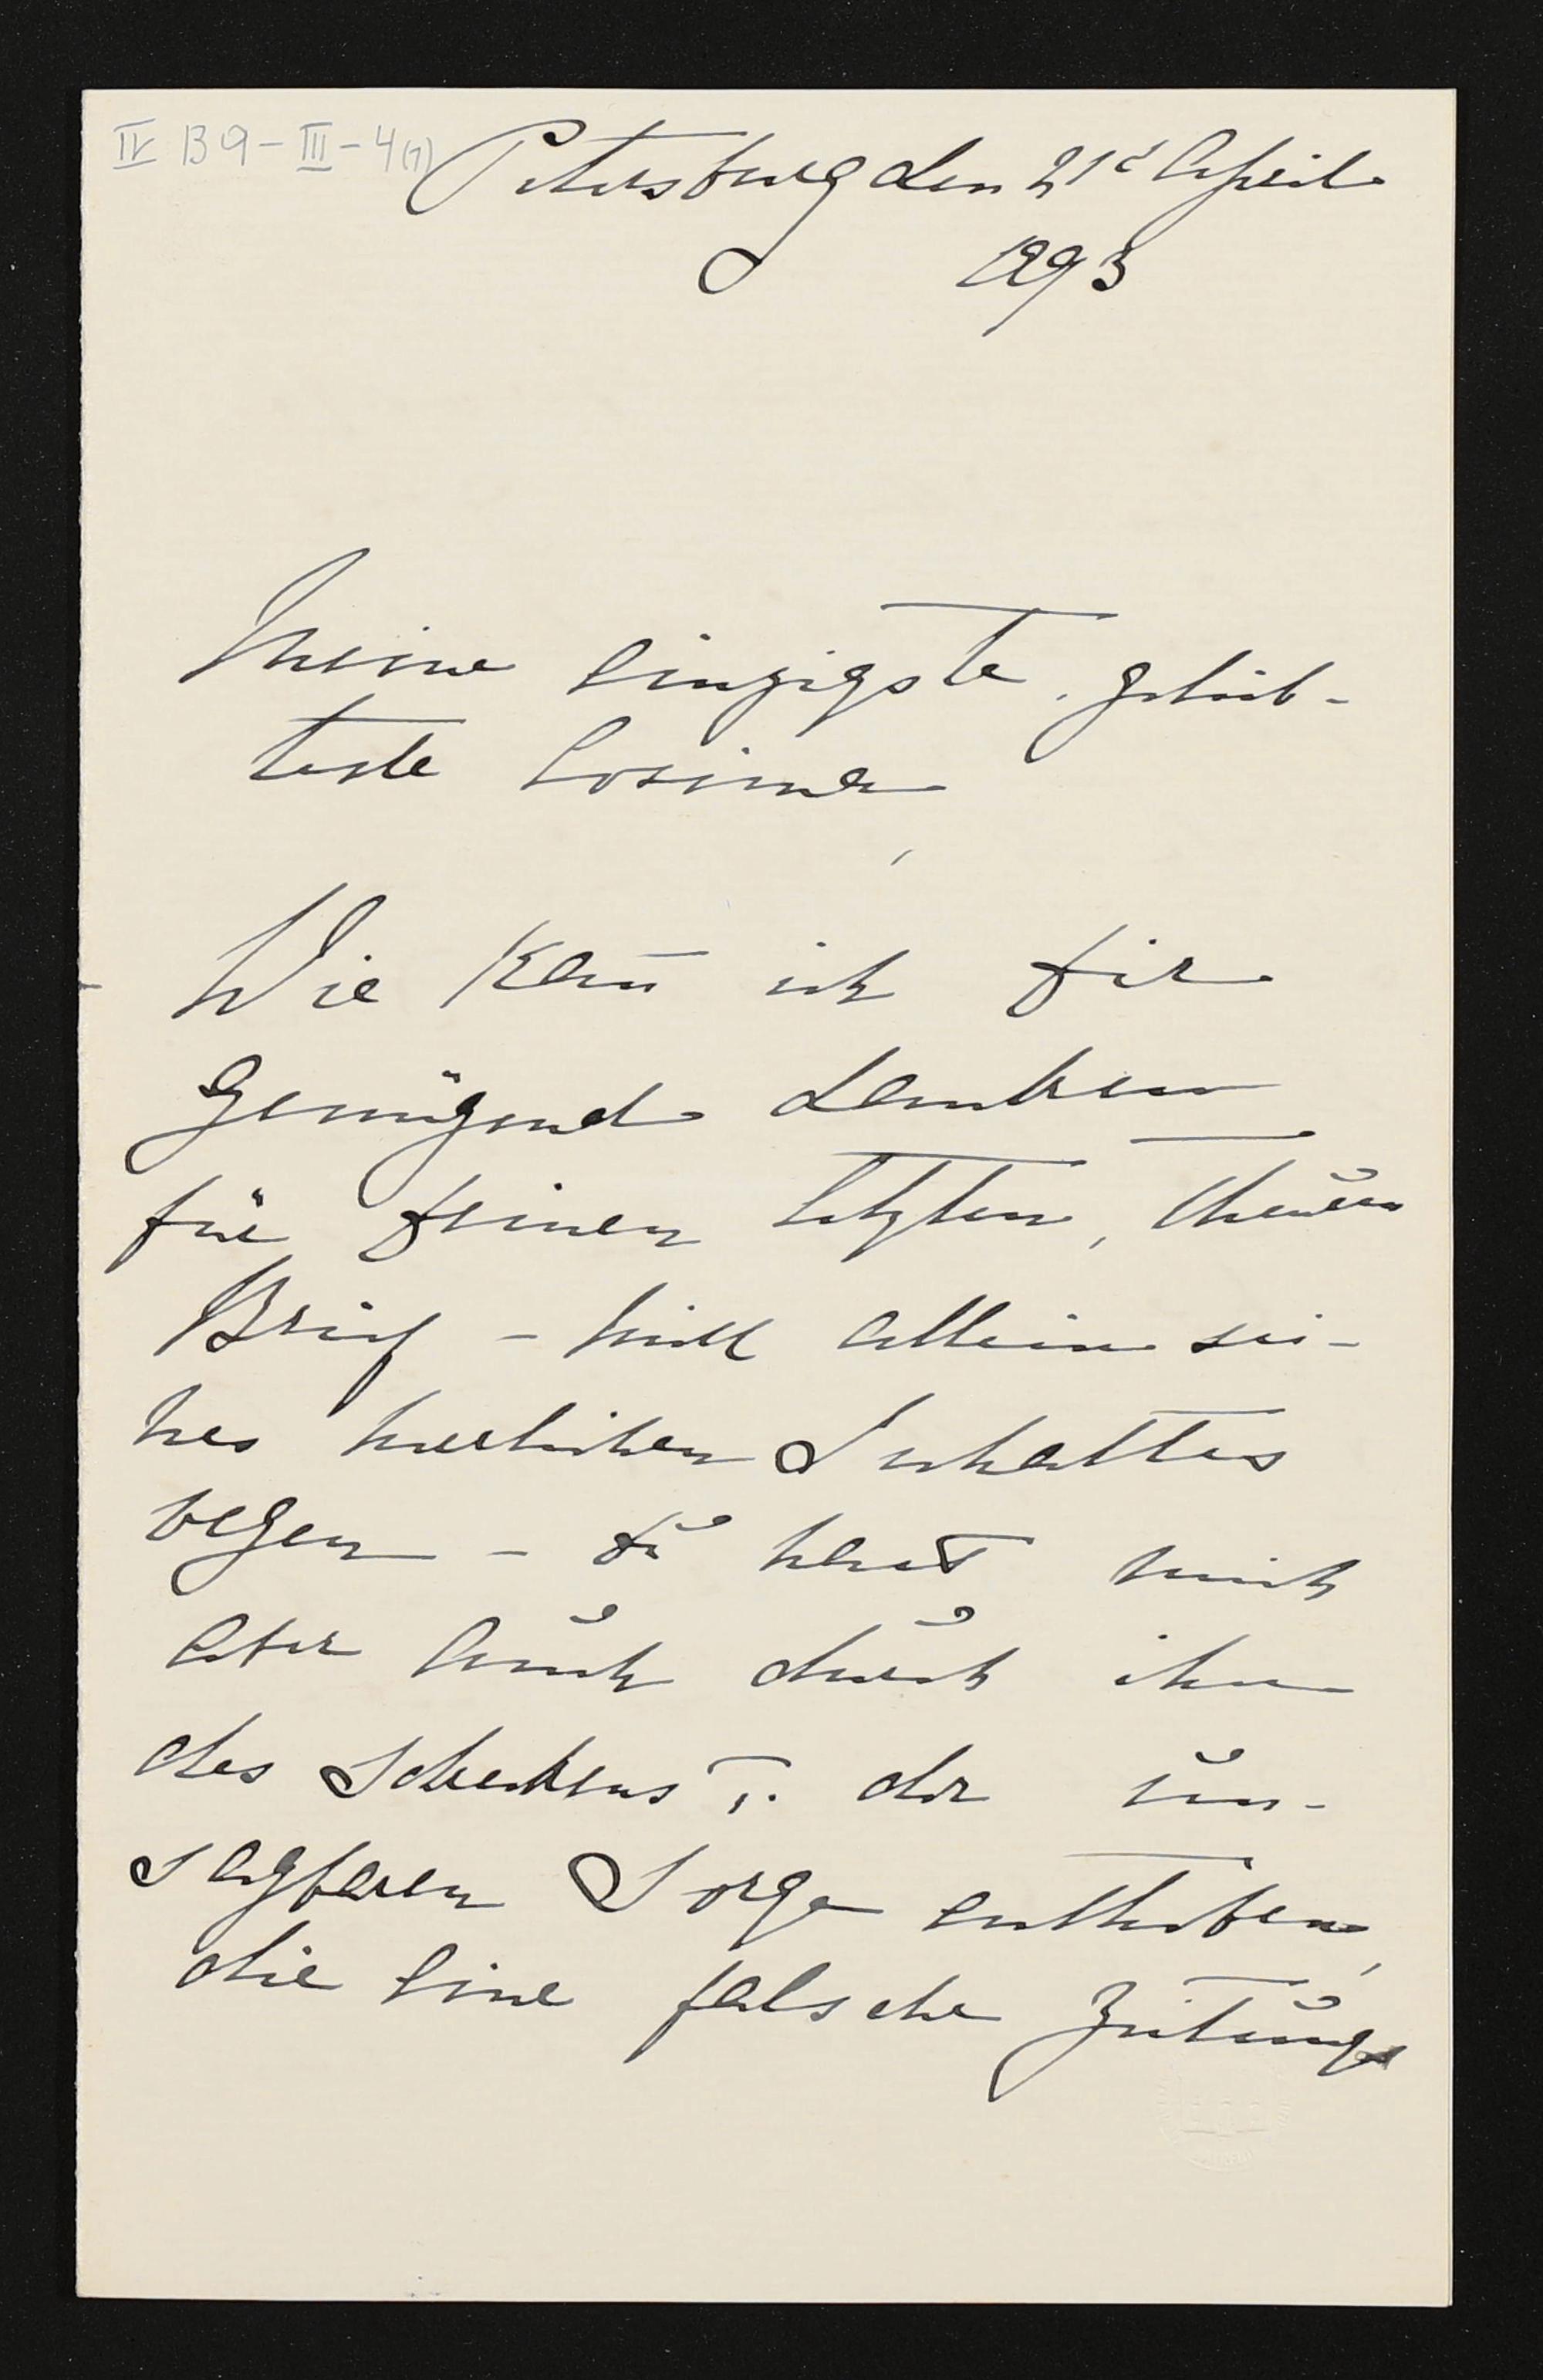 IV B 9 - III - 4 (1)
Petersburg den 21t April
1893
Meine einzigste, gelieb-
teste Cosima,
Wie kan̄ ich Dir
genügend danken
für Deinen letzten, theuren
Brief - nicht allein sei-
nes herrlichen Inhaltes
wegen - Du hast mich
aber auch durch ihn
des Schreckens u. der un-
sagbaren Sorge enthoben,
die eine falsche Zeitungs